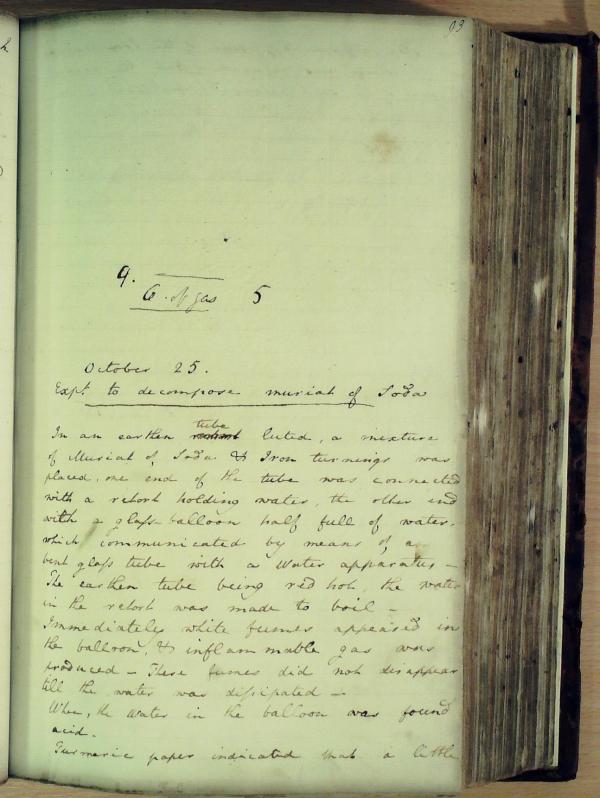 93
9.
6. of gas 5
October 25.
Expt. to decompose muriat of Soda
In an earthen tube luted, a mixture
of Muriat of Soda & Iron turnings was
placed, one end of the tube was connected
with a retort holding water, the other end
with a glass-balloon half full of water,
which communicated by means of a
bent glass tube with a Water apparatus -
The earthen tube being red hot, the water
in the retort was made to boil -
Immediately white fumes appeared in
the balloon, & inflammable gas was
produced - These fumes did not disappear
till the water was dissipated -
When, the Water in the balloon was found
acid.
Turmeric paper indicated that a little